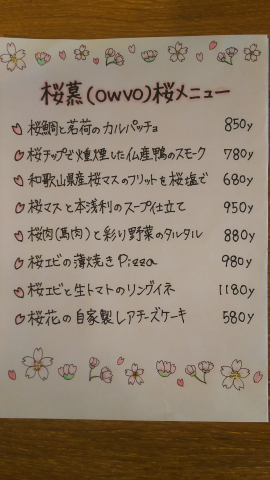 桜慕(owvo)桜メニュー
桜鯛と茗荷のカルパッチョ 850y
桜チップで燻煙した仏産鴨のスモーク 780y
和歌山県産桜マスのフリットを桜塩で 680y
桜マスと本浅利のスープ仕立て 950y
桜肉(馬肉)と彩り野菜のタルタル 880y
桜エビの薄焼きPizza 980y
桜エビと生トマトのリングイネ 1180y
桜花の自家製レアチーズケーキ 580y